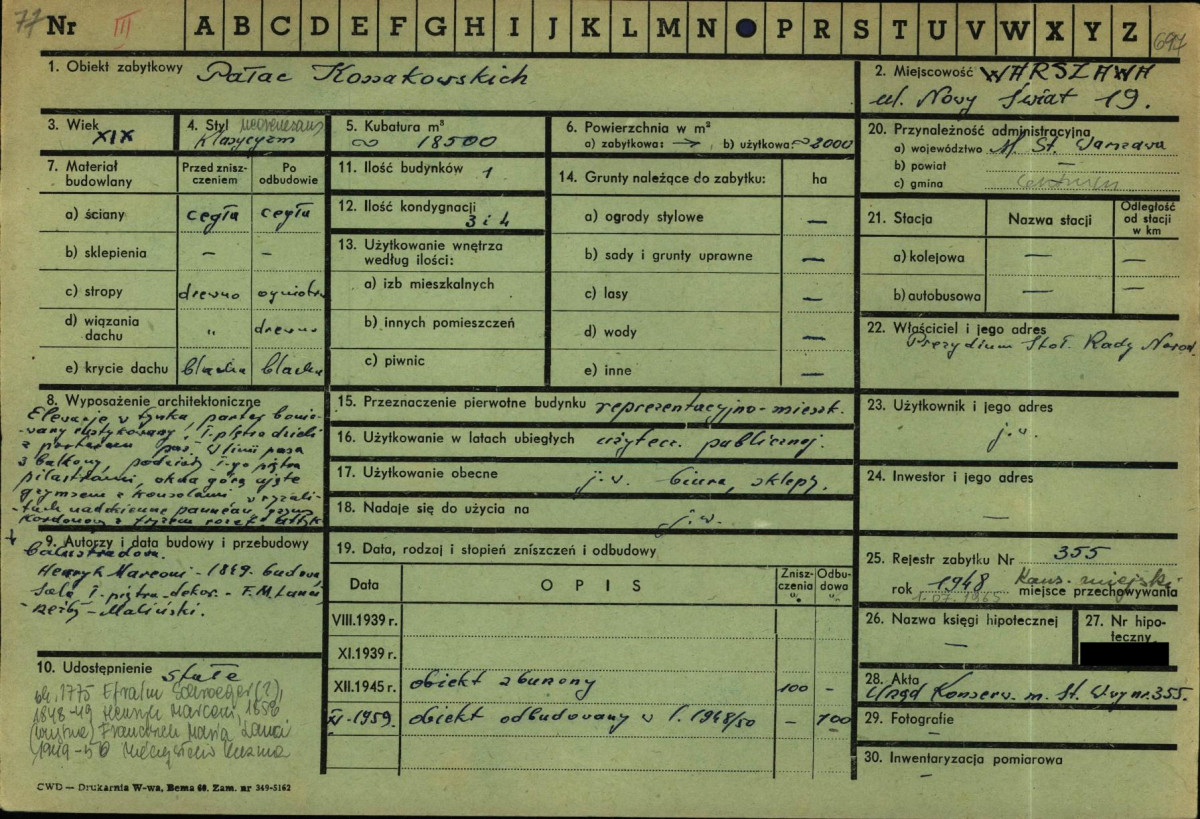 77 Nr III A B C D E F G H I J K L M N P R S T U V W X Y Z
1. Obiekt zabytkowy Pałac Kossakowskich
2. Miejscowość WARSZAWA
ul. Nowy Świat 19.
3. Wiek XIX
4. Styl neorenesans
klasycyzm
5. Kubatura m³
~ 18500
6. Powierzchnia w m²
a) zabytkowa: — b) użytkowa: ~2000
20. Przynależność administracyjna
a) województwo M. St. Warszawa
b) powiat —
c) gmina
7. Materiał budowlany
Przed zniszczeniem
Po odbudowie
a) ściany cegła cegła
b) sklepienia – –
c) stropy drewno ogniotrw
d) wiązania dachu „ drewno
e) krycie dachu blacha blacha
11. Ilość budynków 1
12. Ilość kondygnacji
3 i 4
13. Użytkowanie wnętrza
według ilości:
a) izb mieszkalnych
b) innych pomieszczeń
c) piwnic
14. Grunty należące do zabytku: ha
a) ogrody stylowe —
b) sady i grunty uprawne —
c) lasy —
d) wody —
e) inne —
21. Stacja Nazwa stacji Odległość od stacji w km
a) kolejowa — —
b) autobusowa — —
22. Właściciel i jego adres
Prezydium Stoł. Rady Narod.
8. Wyposażenie architektoniczne
Elewacje w tynku, parter bonio-
wany rustykowany, I-piętro dzieli
z parterem pas. W linii pasa
3 balkony, podział I-go piętra
pilastrami, okna górą ujęte
gzymsem z konsolami w ryzali-
tach
balustradom.
15. Przeznaczenie pierwotne budynku reprezentacyjno-mieszk.
16. Użytkowanie w latach ubiegłych użytecz. publicznej.
17. Użytkowanie obecne j.w. biura, sklepy.
18. Nadaje się do użycia na j.w.
23. Użytkownik i jego adres
j.w.
24. Inwestor i jego adres
—
9. Autorzy i data budowy i przebudowy
Henryk Marconi - 1849. budowa
Sala I-piętra - dekor. - F. M. Lanci
rzeźby - Maliński.
19. Data, rodzaj i stopień zniszczeń i odbudowy
Data OPIS Zniszczenia % Odbudowa %
VIII.1939 r.
XI.1939 r.
XII.1945 r. obiekt zburzony 100 –
XI-1959. obiekt odbudowany w l. 1948/50 – 100
25. Rejestr zabytku Nr 355
rok 1948 Kons. miejski
1.07.1965 miejsce przechowywania
26. Nazwa księgi hipotecznej
—
27. Nr hipoteczny
28. Akta
Urząd Konserw. m. St. W-wy nr. 355.
29. Fotografie
—
30. Inwentaryzacja pomiarowa
—
10. Udostępnienie stałe
ok. 1775 Efraim Schroeger (?),
1848-49 Henryk Marconi, 1858
(wnętrza) Franciszek Maria Lanci
(1949-50 Mieczysław Kuzma
CWD — Drukarnia W-wa, Bema 60. Zam. nr 349-5162